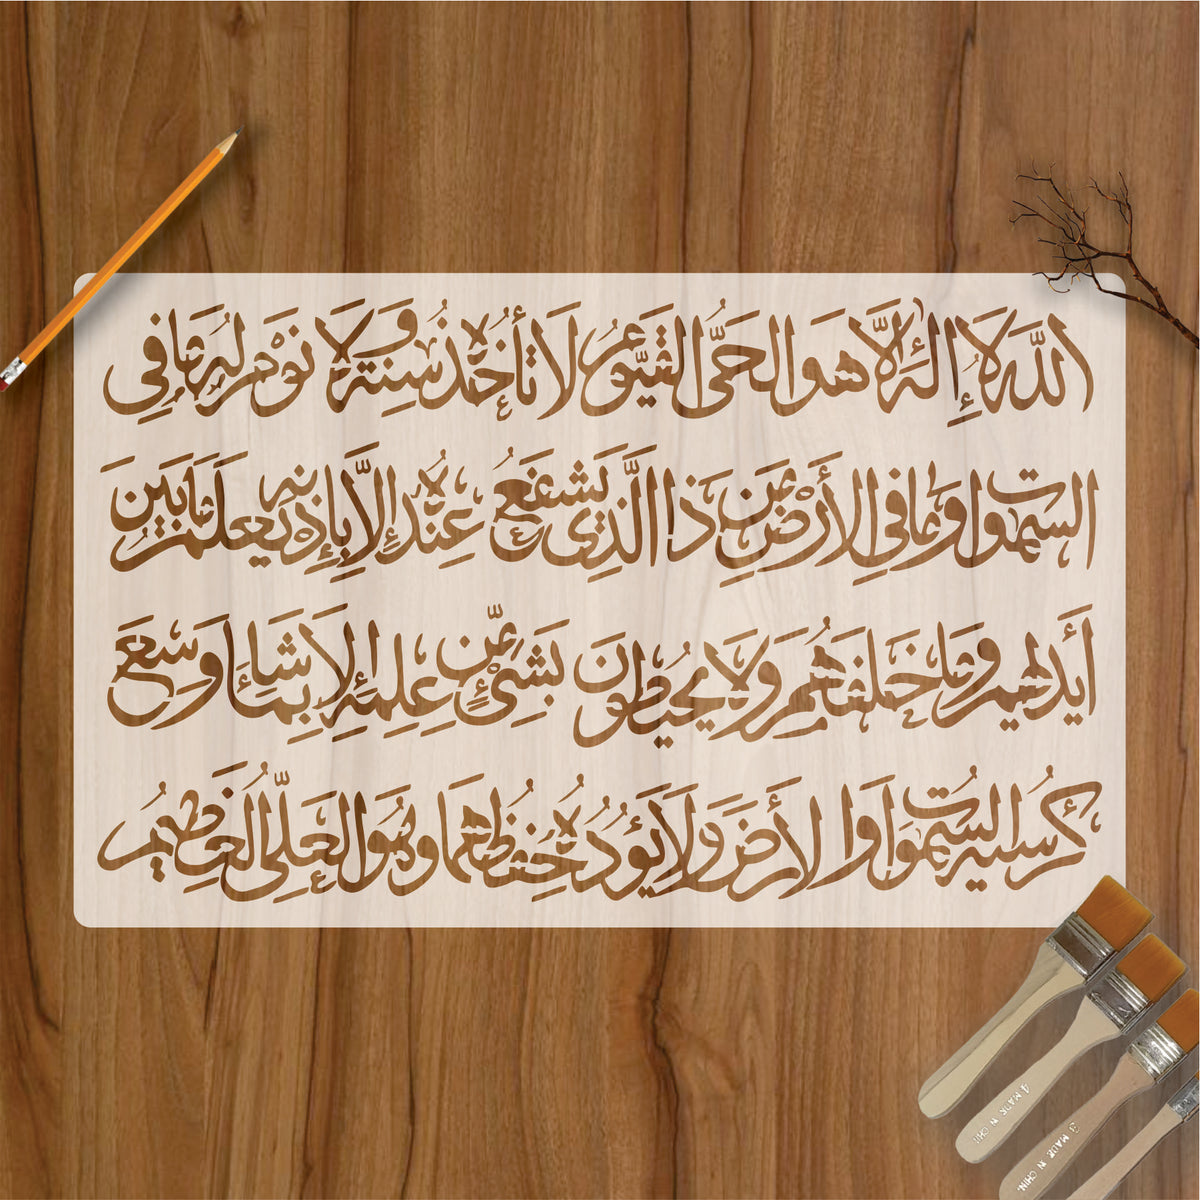 الله لَا إِلَهَ إلَّا هوَ الحَىُّ القَيُّومُ لَا تَأخُذُهُ سِنَةٌ وَلَا نَوْمٌ لَهُ مَا فِي
السَّمٰوَاتِ وَمَا فِي الأَرْضِ مَن ذَا الَّذِي يَشفَعُ عِندَهُ إِلَّا بِإِذنِهِ يَعلَمُ مَا بَينَ
أَيدِيهِم وَمَا خَلفَهُم وَلَا يُحِيطُونَ بِشَيْءٍ مِّن عِلمِهِ إِلَّا بِمَا شَاءَ وَسِعَ
كُرسِيُّهُ السَّمٰوَاتِ وَالأَرضَ وَلَا يَؤُدُهُ حِفظُهُمَا وَهُوَ العَلِىُّ العَظِيمُ
4 MADE IN CHIN
3 MADE IN CHIN